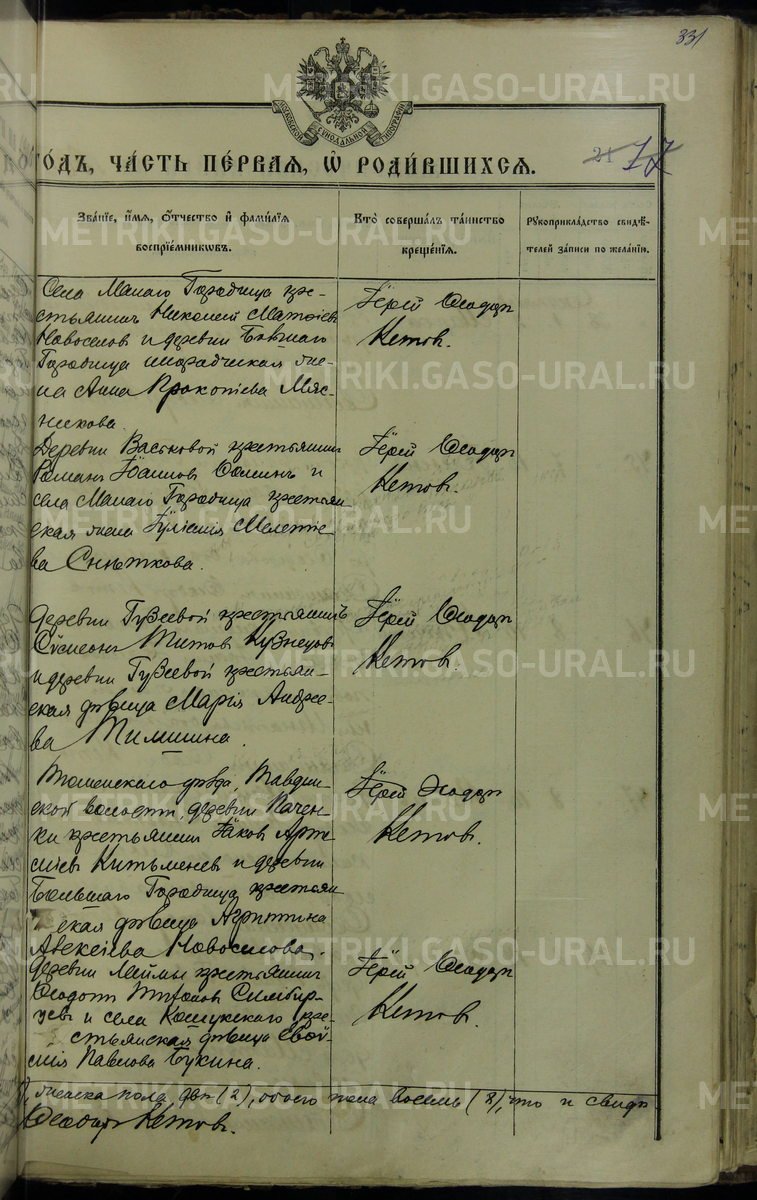 331
МОСКОВСКОЙ СѴНОДАЛЬНОЙ ТИПОГРАФІИ
METRIKI.GASO-URAL.RU
го́дъ, ча́сть пе́рваѧ, ѡ҆ роди́вшихсѧ.
21 17
Зва́нїе, и҆́мѧ, ѻ҆́тчество и҆ фами́лїѧ воспрїе́мникѡвъ.
Кто̀ соверша́лъ та́инство креще́нїѧ.
Рꙋкоприкла́дство свидѣ́телей за́писи по жела́нїю.
Села Малаго Городища кре-
стьянинъ Николай Матѳіевъ
Новоселов и деревни Большаго
Городища инородческая же-
на Анна Прокопіева Мяс-
никова.
Іерей Ѳеодор
Кетов.
Деревни Васьковой крестьянинъ
Роман Іоаннов Ѳоминъ и
села Малаго Городища крестьян
ская жена Іуліанія Мелетіе-
ва Снѣткова.
Іерей Ѳеодор
Кетов.
Деревни Гузеевой крестьянинъ
Сѵмеонъ Титов Кузнецовъ
и деревни Гузеевой крестьян-
ская дѣвица Марія Андре-
ва Тимшина.
Іерей Ѳеодор
Кетов.
Тюменскаго уѣзда, Тавдин-
ской волости, деревни
крестьянинъ Іаков Арте-
міевъ и деревни
Большаго Городища крестьян
ская дѣвица Агриппина
Алексіева Новоселова.
Іерей Ѳеодор
Кетов.
Деревни крестьянинъ
Ѳеодотъ
и села Кошукскаго кре-
стьянская дѣвица Евѳи-
мія Павлова Букина.
Іерей Ѳеодор
Кетов.
женска пола два (2), обоего пола восемь (8), что и свидѣ-
Ѳеодоръ Кетовъ.